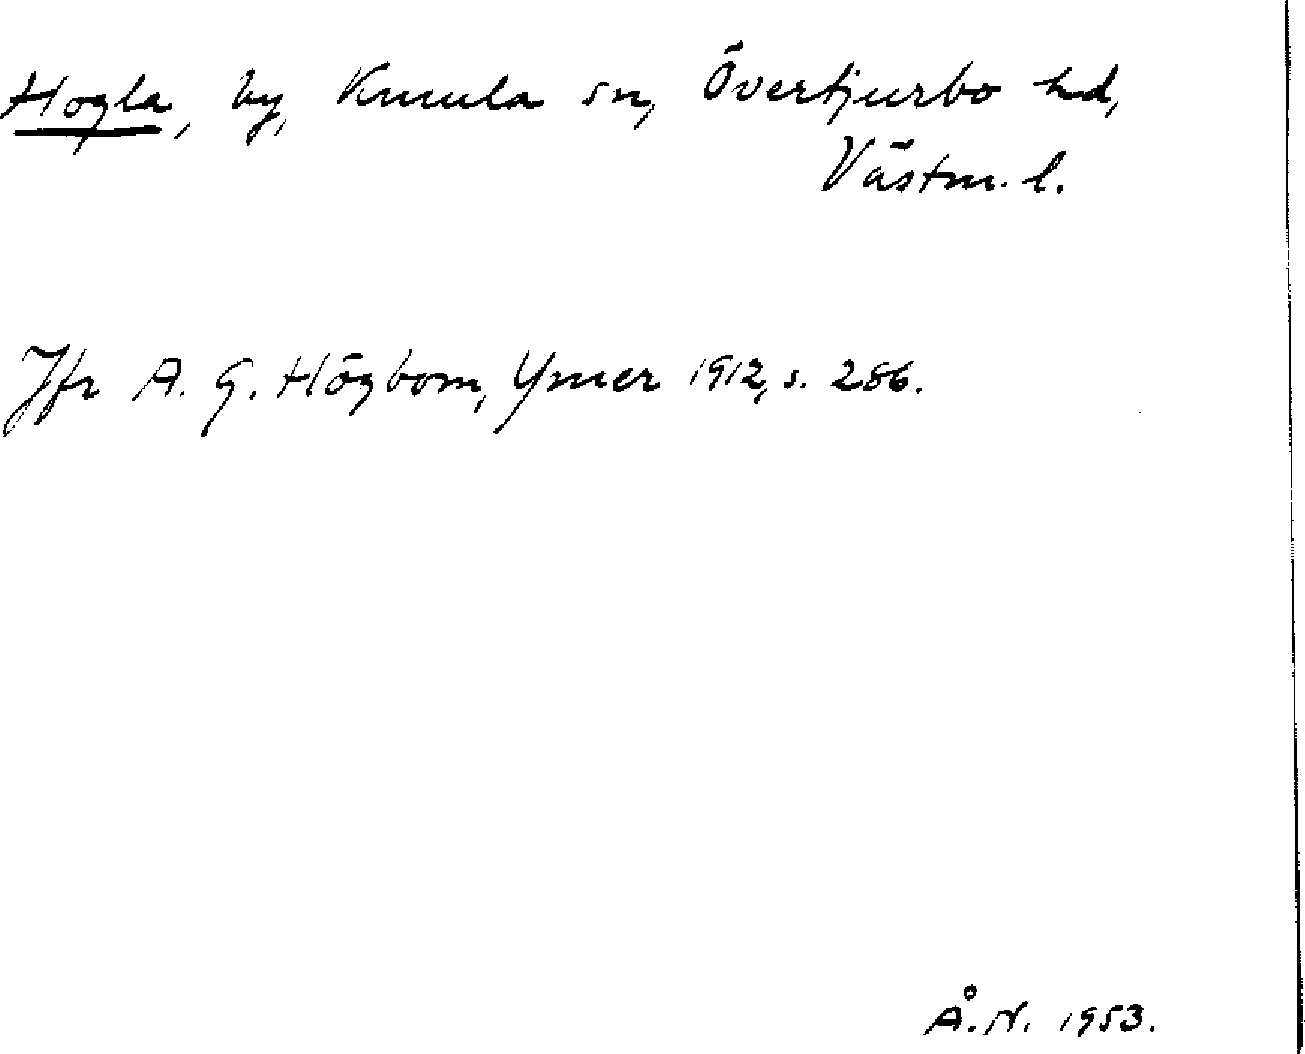 Hogla, by, Kumla sn, Övertjurbo hd,
Västm. l.
Jfr A. G. Högbom, Ymer 1912, s. 286.
Å. N. 1953.